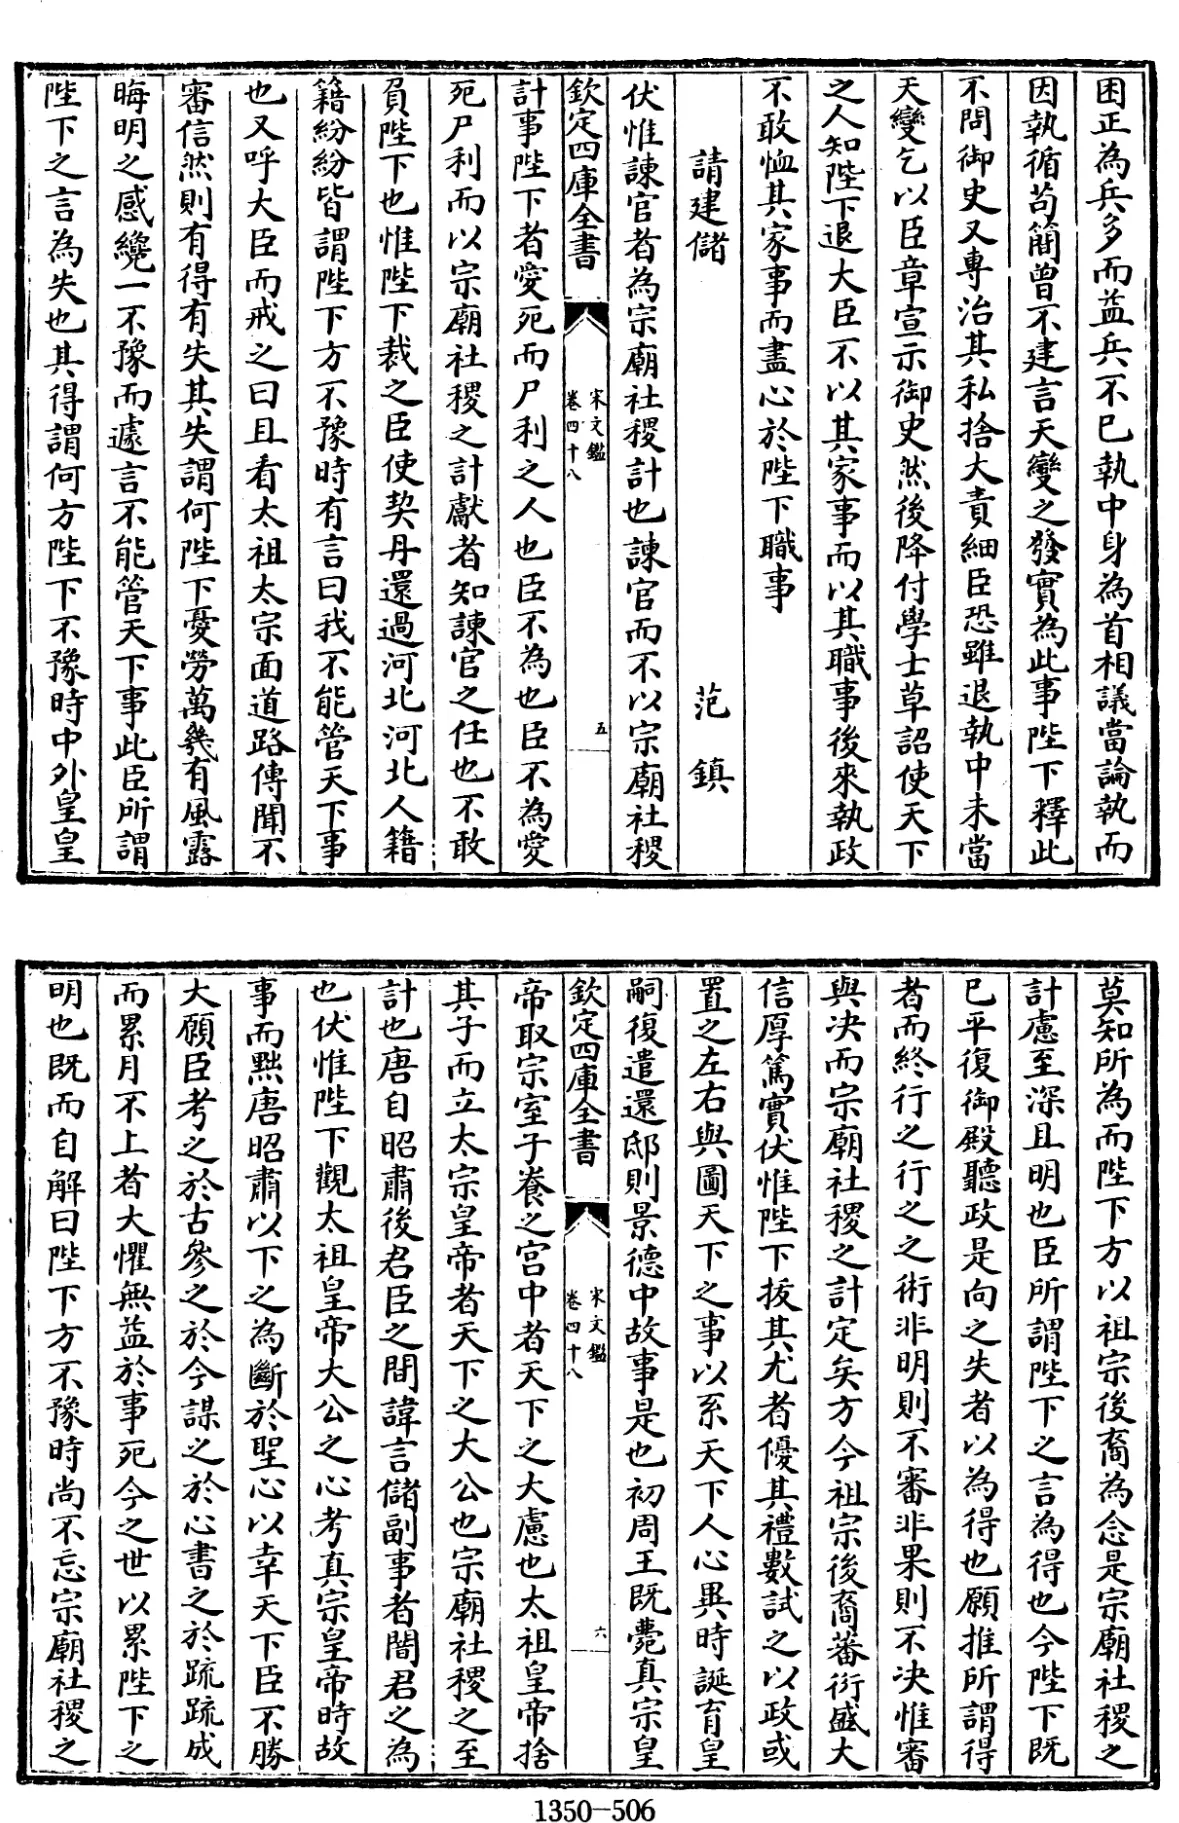 困正為兵多而益兵不已執中身為首相議當論執而
因執循苟簡曽不建言天變之發實為此事陛下釋此
不問御史又專治其私捨大責細臣恐雖退執中未當
天變乞以臣章宣示御史然後降付學士草詔使天下
之人知陛下退大臣不以其家事而以其職事後來執政
不敢恤其家事而盡心於陛下職事
請建儲 范鎮
伏惟諫官者為宗廟社稷計也諫官而不以宗廟社稷
欽定四庫全書 宋文鑑 卷四十八 五
計事陛下者愛死而尸利之人也臣不為也臣不為愛
死尸利而以宗廟社稷之計獻者知諫官之任也不敢
負陛下也惟陛下裁之臣使契丹還過河北河北人籍
籍紛紛皆謂陛下方不豫時有言曰我不能管天下事
也又呼大臣而戒之曰且看太祖太宗面道路傳聞不
審信然則有得有失其失謂何陛下憂勞萬幾有風露
晦明之感纔一不豫而遽言不能管天下事此臣所謂
陛下之言為失也其得謂何方陛下不豫時中外皇皇
莫知所為而陛下方以祖宗後裔為念是宗廟社稷之
計慮至深且明也臣所謂陛下之言為得也今陛下既
已平復御殿聽政是向之失者以為得也願推所謂得
者而終行之行之之術非明則不審非果則不決惟審
與决而宗廟社稷之計定矣方今祖宗後裔蕃衍盛大
信厚篤實伏惟陛下拔其尤者優其禮數試之以政或
置之左右與圖天下之事以系天下人心異時誕育皇
嗣復遣還邸則景德中故事是也初周王既薨真宗皇
欽定四庫全書 宋文鑑 卷四十八 六
帝取宗室子養之宫中者天下之大慮也太祖皇帝捨
其子而立太宗皇帝者天下之大公也宗廟社稷之至
計也唐自昭肅後君臣之間諱言儲副事者闇君之為
也伏惟陛下觀太祖皇帝大公之心考真宗皇帝時故
事而黜唐昭肅以下之為斷於聖心以幸天下臣不勝
大願臣考之於古參之於今謀之於心書之於疏疏成
而累月不上者大懼無益於事死今之世以累陛下之
明也既而自解曰陛下方不豫時尚不忘宗廟社稷之
1350-506